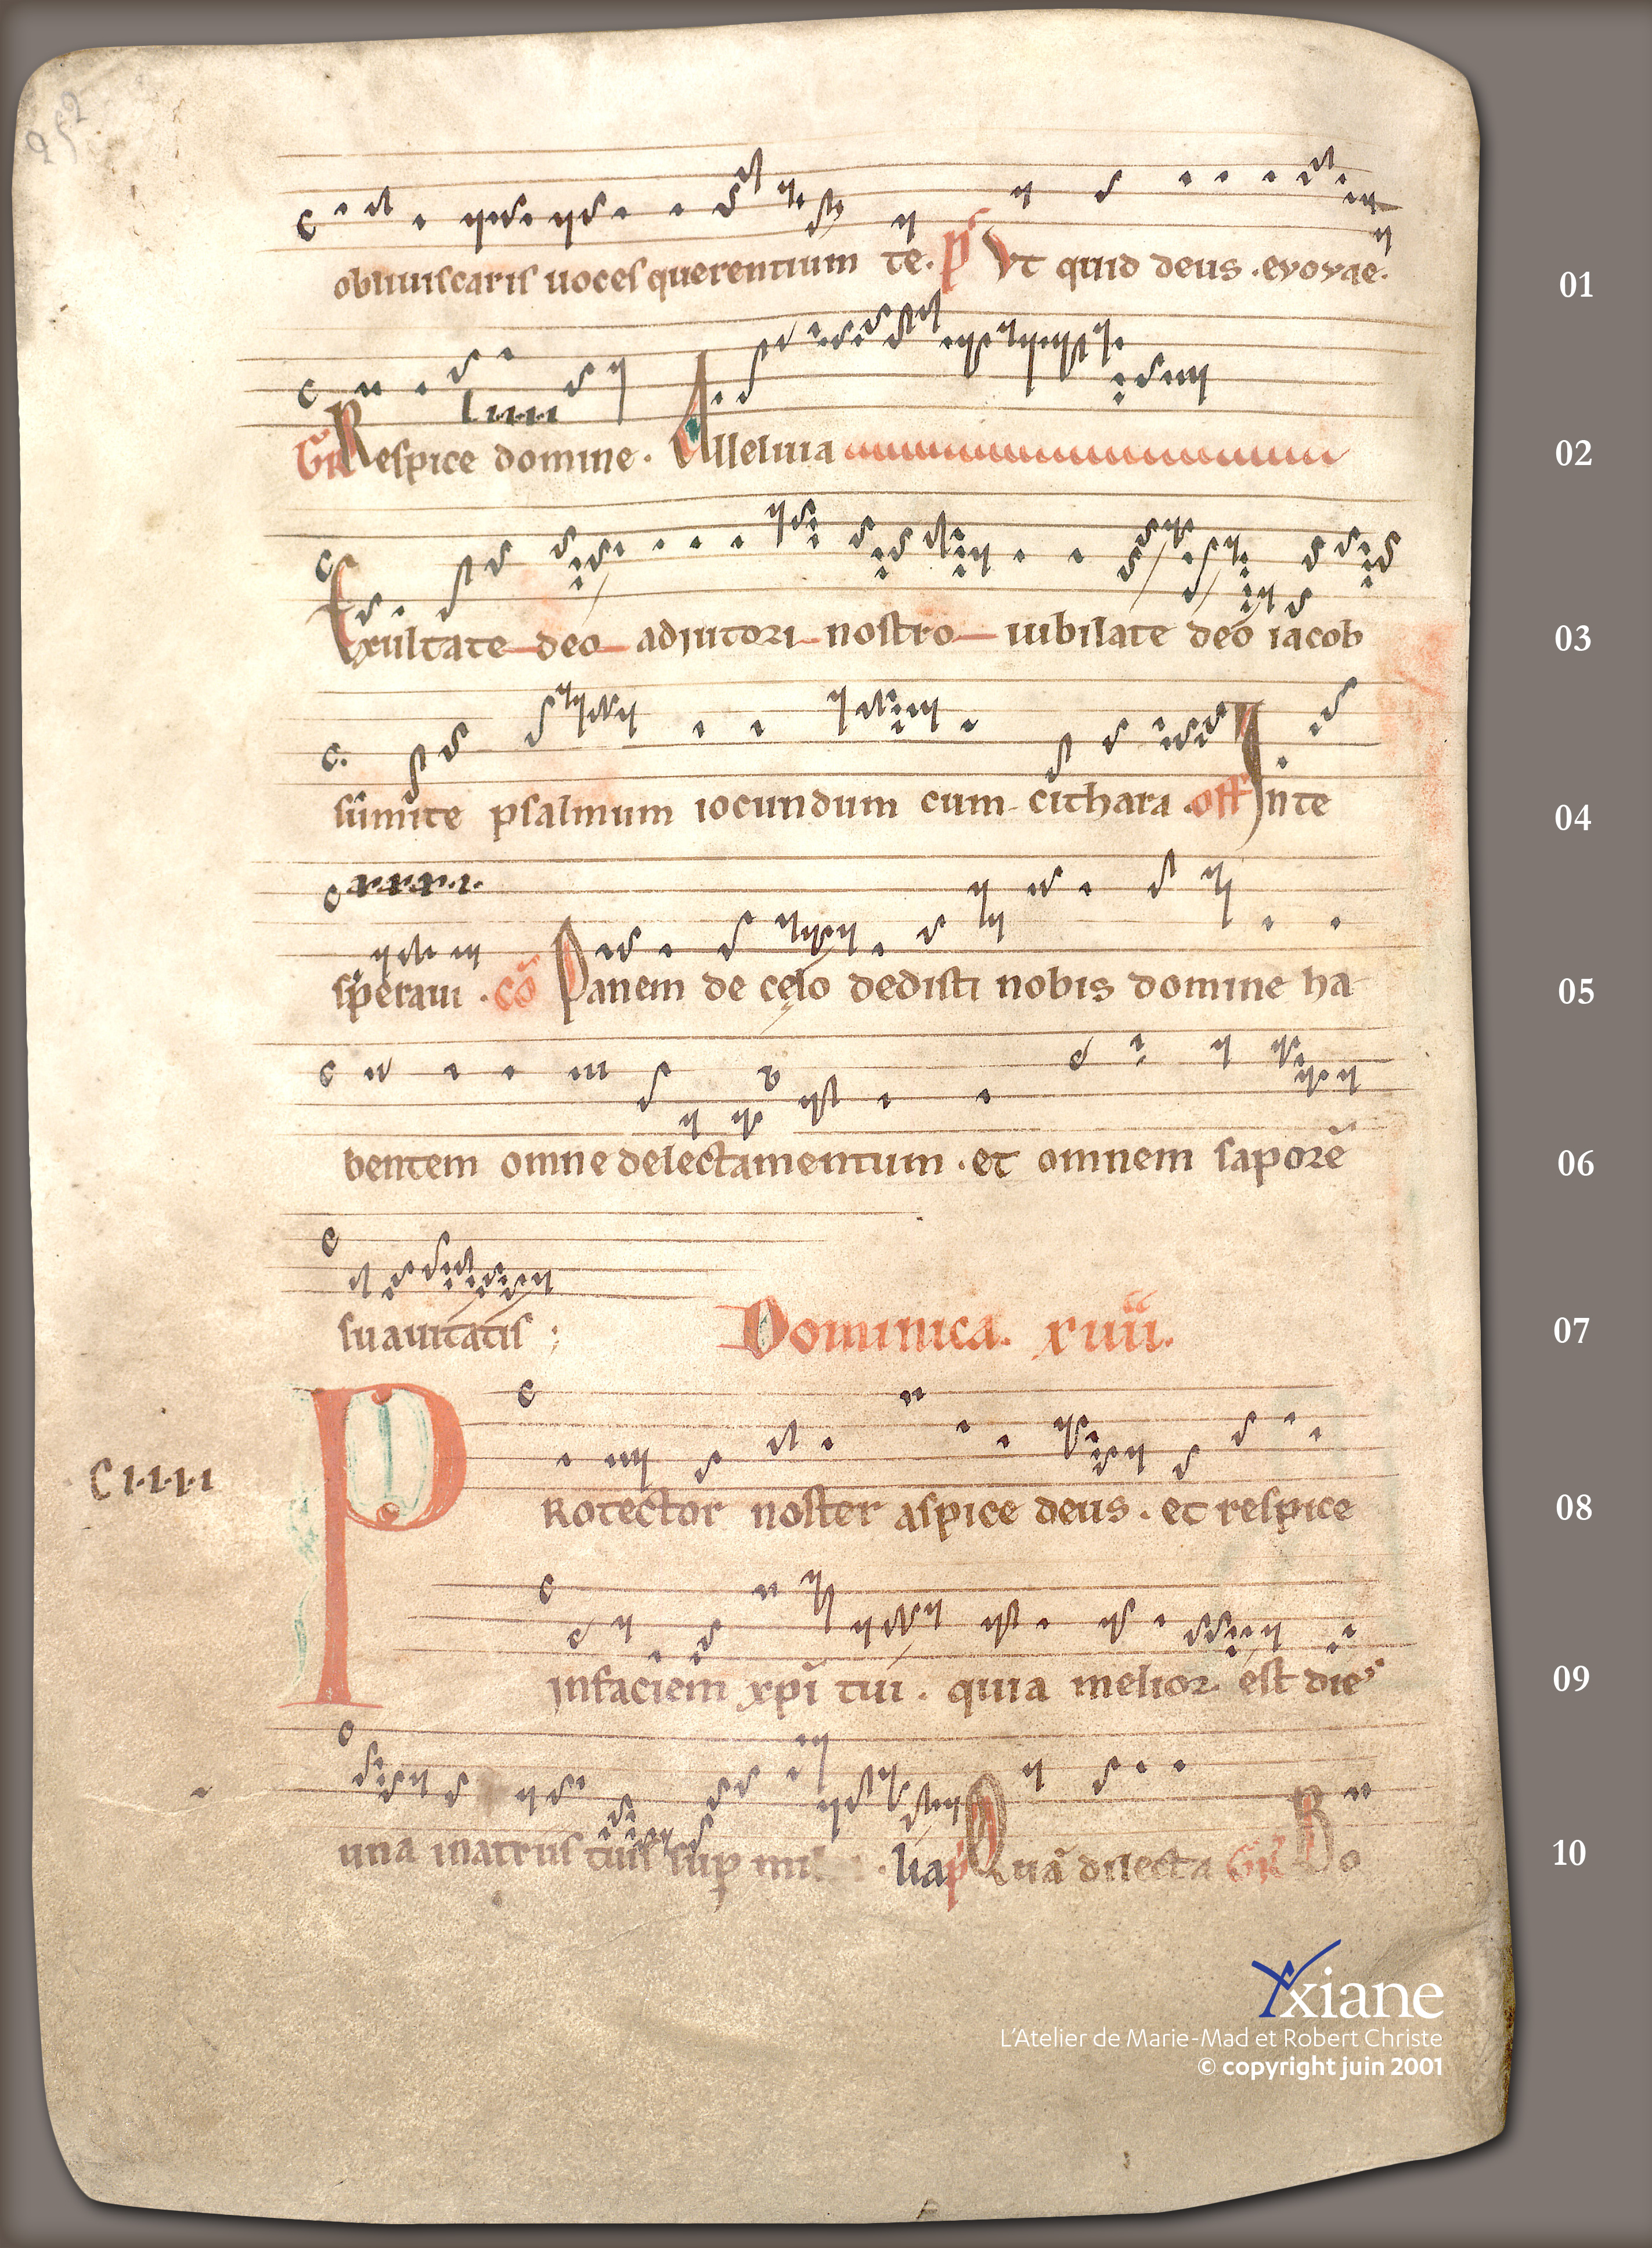 252
obliuiscaris uoces querentium te. pˢ Vt quid deus . evovae. 01
l.i.i.i.i
Gr̄ Respice domine . Alleluia 02
Exultate deo adiutori nostro iubilate deo iacob 03
sumite psalmum iocundum cum cithara . off In te 04
x.r.r.r.i.
speraui . cō Panem de cęlo dedisti nobis domine ha 05
bentem omne delectamentum . et omnem saporē 06
suauitatis ; Dominica. xuii. 07
C i.i.i.i
PRotector noster aspice deus . et respice 08
in faciem xp̄i tui . quia melior est dies 09
una in atriis tuis sup̄ . lia p̄ Quā dilecta Gr̄ Bo 10
Yxiane
L'Atelier de Marie-Mad et Robert Christe
© copyright juin 2001